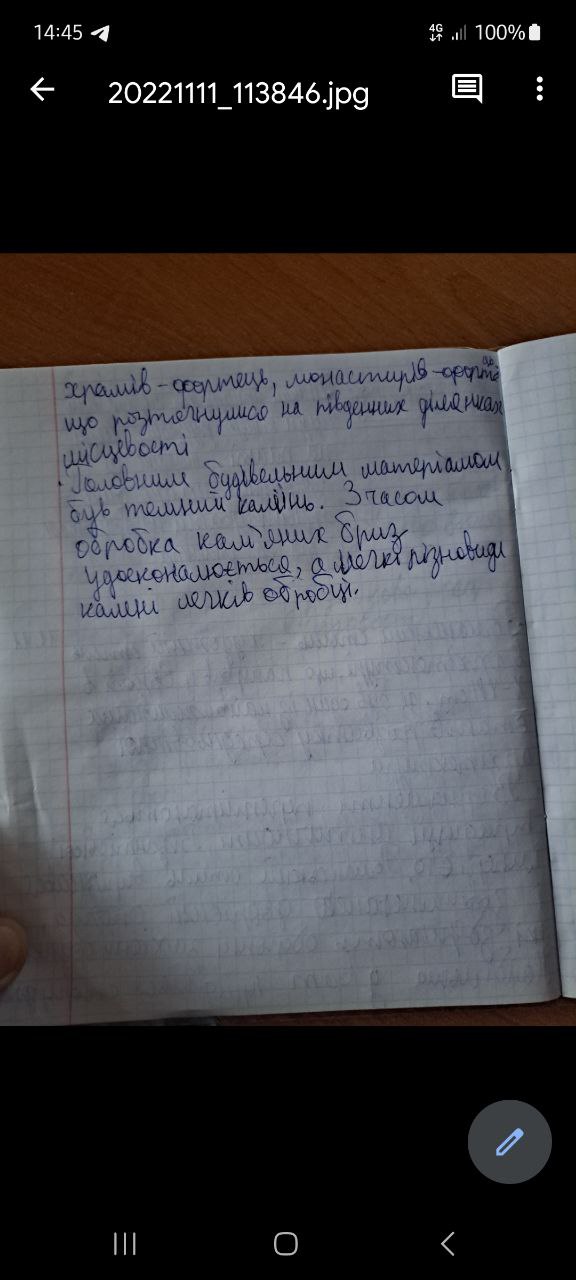 14:45
4G
100%
20221111_113846.jpg
храмів-фортець, монастирів-форте
що розтягнулися на південних ділянках
місцевості
Головним будівельним матеріалом
був темний камінь. З часом
обробка кам'яних бриз
удосконалюється, а мягкі різновиди
камені легків обробці.